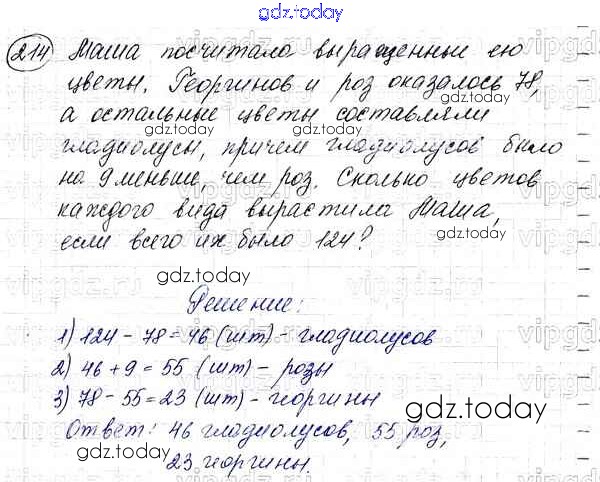 gdz.today
214 Маша посчитала выращенные ею
цветы. Георгинов и роз оказалось 78,
а остальные цветы составляли
gdz.today gdz.today
гладиолусы, причем гладиолусов было
на 9 меньше, чем роз. Сколько цветов
каждого вида вырастила Маша,
если всего их было 124?
gdz.today gdz.today
Решение:
1) 124 - 78 = 46 (шт) - гладиолусов
2) 46 + 9 = 55 (шт) - розы
3) 78 - 55 = 23 (шт) - георгины
gdz.today
Ответ: 46 гладиолусов, 55 роз,
23 георгины.